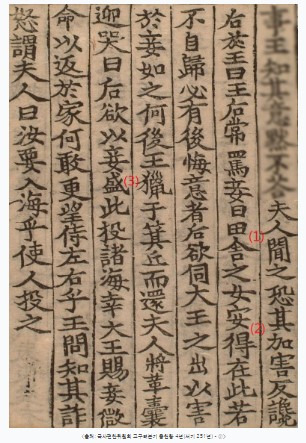 事王知其意默不答夫人聞之恐其加害反讒
后於王曰王后常罵妾曰田舎之女安得在此若
不自歸必有後悔意者后欲伺大王之出以害
於妾如之何後王獵于箕丘而還夫人將革囊
迎哭曰后欲以妾盛此投諸海幸大王賜妾微
命以返於家何敢更望侍左右乎王問知其詐
怒謂夫人曰汝要入海乎使人投之
(1)
(2)
(3)
(출처: 국사편찬위원회 고구려본기 중천왕 4년(서기 251년) - ②)